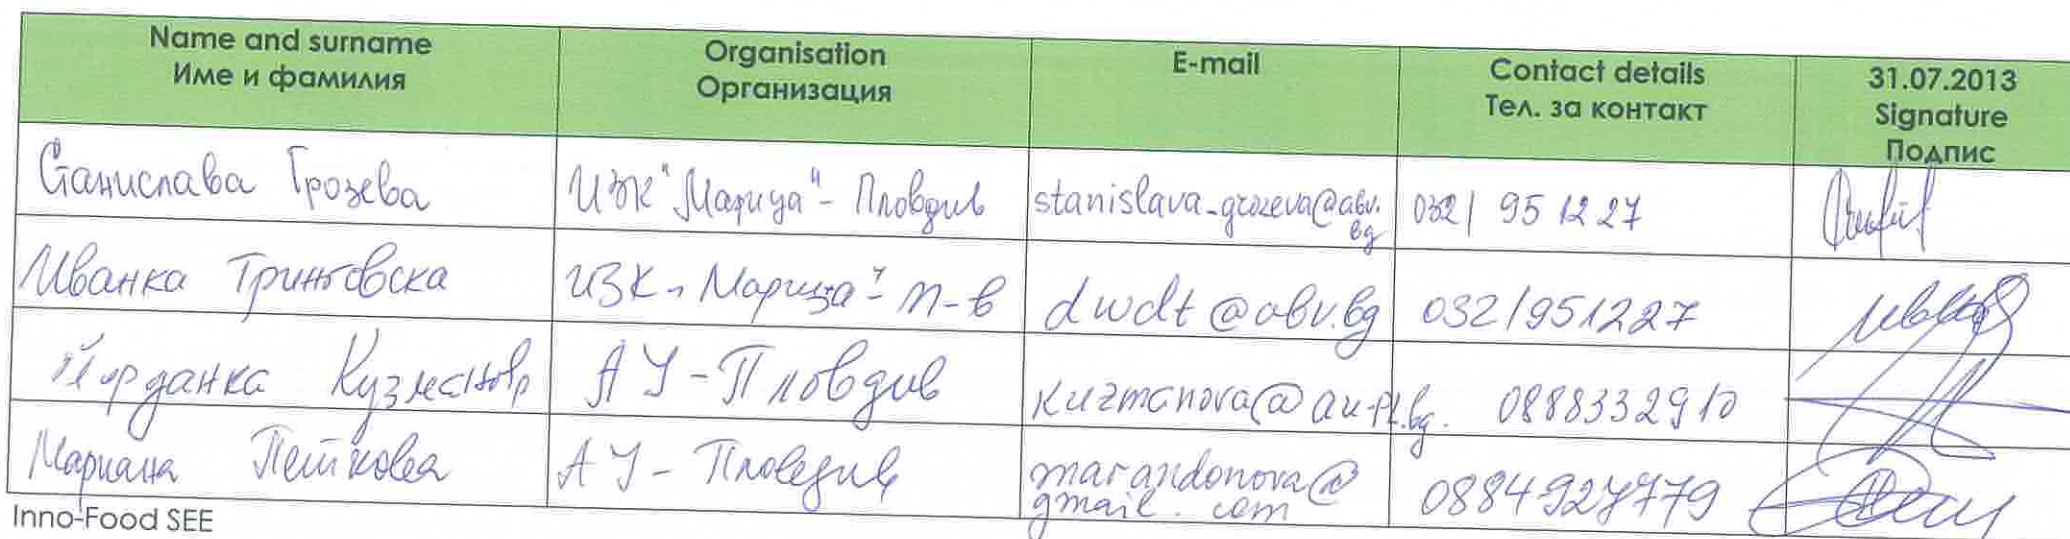 Name and surname
Име и фамилия
Organisation
Организация
E-mail
Contact details
Тел. за контакт
31.07.2013
Signature
Подпис
Станислава Грозева
ИЗК "Марица" - Пловдив
stanislava_grozeva@abv.
bg
032/ 95 12 27
Иванка Тринговска
ИЗК "Марица" - П-в
dwdt@abv.bg
032/951227
Йорданка Кузманова
АУ - Пловдив
kuzmanova@au-pl.bg.
0888332910
Мариана Петкова
АУ - Пловдив
marandonova@
gmail.com
0884927779
Inno-Food SEE